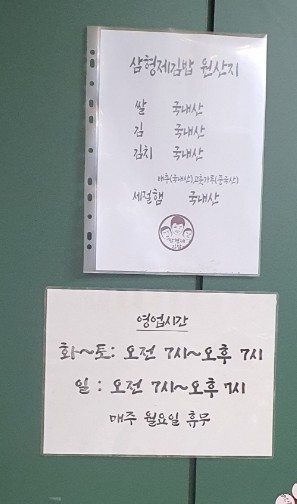 삼형제김밥 원산지
쌀 국내산
김 국내산
김치 국내산
배추(국내산),고춧가루(중국산)
세절햄 국내산
삼형제
김밥
영업시간
화~토: 오전 7시~오후 7시
일 : 오전 7시~오후 7시
매주 월요일 휴무